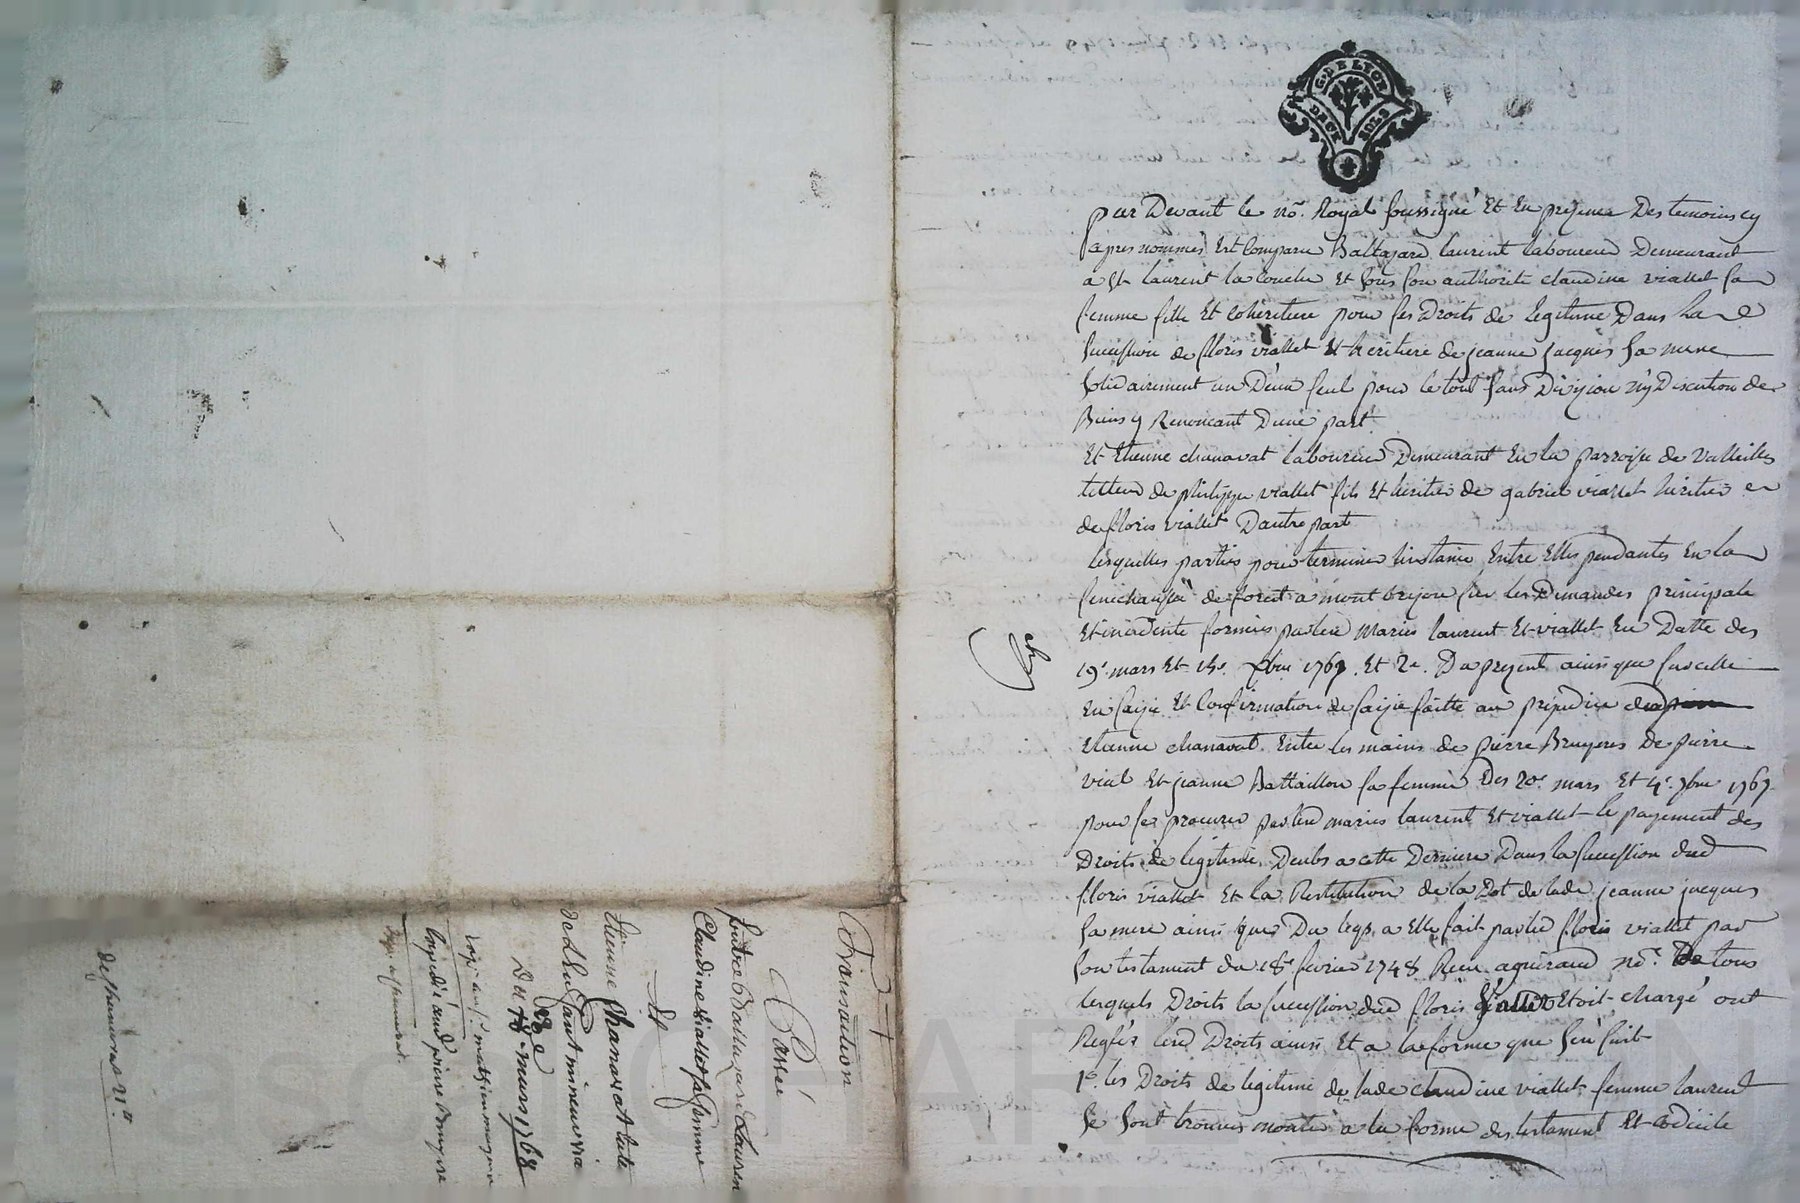 G. DE LYON
DEUX SOLS
par Devant le no.re Royal soussigné Et En presence Des temoins cy
apres nommés Est Comparu Baltazard laurent laboureur Demeurant
a St laurent la conche Et sous son authorité claudine viallet sa
femme fille Et Cohéritiere pour ses Droits de legitime Dans la
succession de floris viallet Et héritiere de jeanne jacques sa mere
solidairement un D'eux seul pour le tout sans Division ny Discution de
Biens y Renoncant Dune part
Et Etienne chanavat laboureur Demeurant En la parroisse de Valleilles
tuteur de philippe viallet fils Et héritier de gabriel viallet héritier
de floris viallet Dautre part
lesquelles parties pour terminer linstance Entre Elles pendantes En la
sénéchaussée de forest a montbrison sur les Demandes principale
Et incidente formées par les mariés laurent Et viallet En Datte des
19e mars Et 15e xbre 1767. Et 2e Du present ainsi que sur celle
En saisie Et Confirmation de saisie faitte au préjudice dud
Etienne chanavat Entre les mains de pierre Bruyeres De pierre
vial Et jeanne Battaillon sa femme Des 20e mars Et 4e 7bre 1767
pour se procurer par les mariés laurent Et viallet le payement des
Droits de legitime Deubs a cette Derniere Dans la succession dud
floris viallet Et la Restitution de la Dot de lade jeanne jacques
sa mere ainsi que Du legs a Elle fait par led floris viallet par
son testament du 18e fevrier 1748 Reçu aguiraud no.re De tous
lesquels Droits la succession dud floris viallet Etoit chargé ont
Reglés lesd Droits ainsi Et a la forme que sen suit
1o. les Droits de legitime de lade claudine viallet femme laurent
se sont trouvés monter a la forme des testament Et codicile
Transaction
Passé
Entre Baltazard Laurent
Claudine viallet sa femme
Et
Etienne Chanavat tute
de Lhuj Gant mineur via
Du 18e mars 1768
mathieu
Expedié aud pierre Bruyere